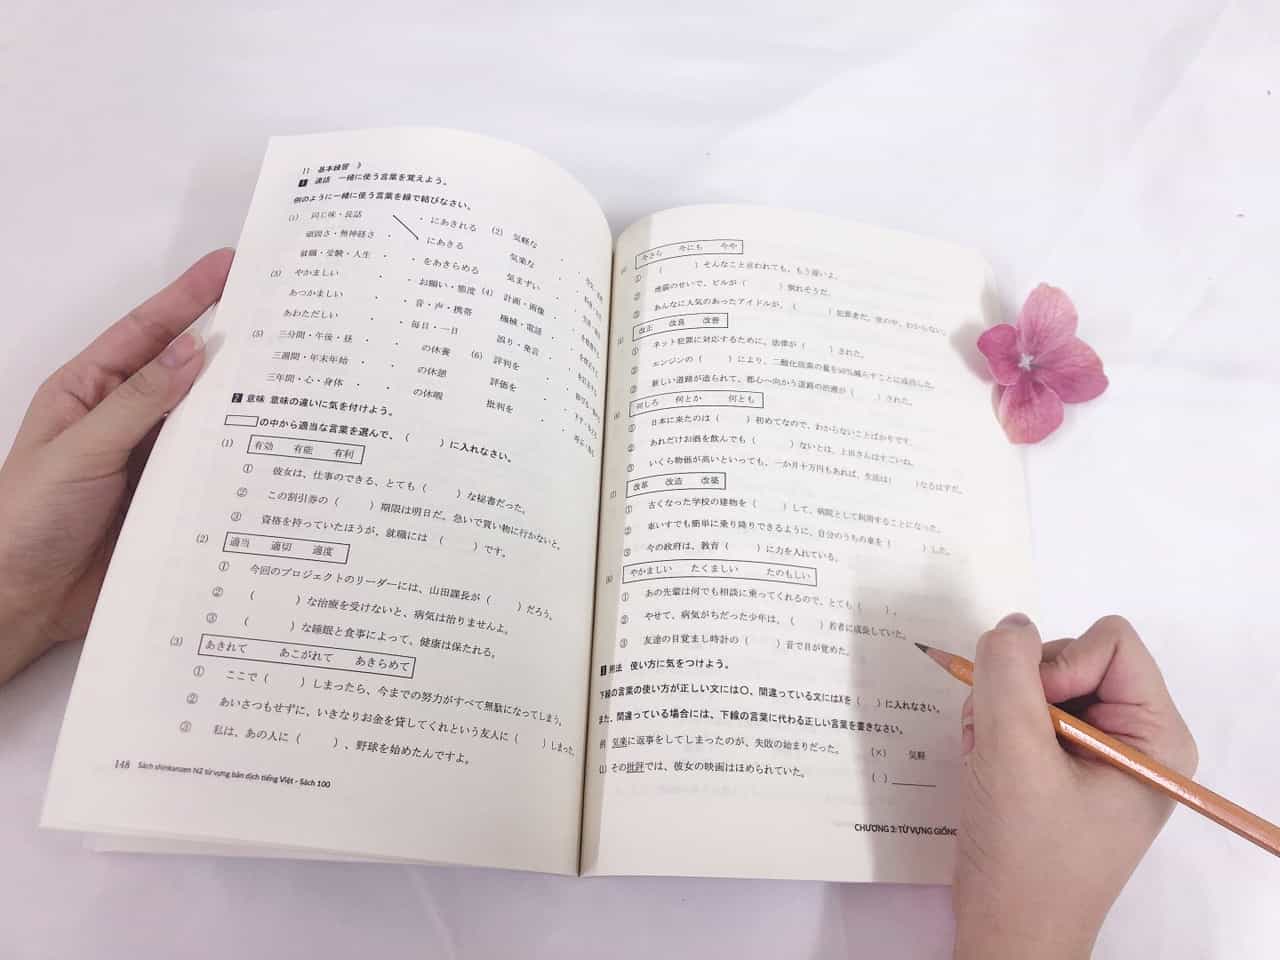 11 基本練習 》
1 連語 一緒に使う言葉を覚えよう。
例のように一緒に使う言葉を線で結びなさい。
(1) 同じ味・長話 ・にあきれる
頑固さ・無神経さ ・ にあきる
就職・受験・人生 ・ ・をあきらめる
(2) 気軽な ・
気楽な ・
気まずい ・
(3) やかましい ・ ・お願い・態度
あつかましい ・ ・音・声・携帯
あわただしい ・ ・毎日・一日
(4) 計画・画像 ・
機械・電話 ・
誤り・発言 ・
(5) 三分間・午後・昼 ・ ・ の休養
三週間・年末年始 ・ ・ の休憩
三年間・心・身体 ・ ・ の休暇
(6) 評判を ・
評価を ・
批判を ・
2 意味 意味の違いに気を付けよう。
の中から適当な言葉を選んで、( )に入れなさい。
(1) 有効 有能 有利
① 彼女は、仕事のできる、とても( )な秘書だった。
② この割引券の( )期限は明日だ。急いで買い物に行かないと。
③ 資格を持っていたほうが、就職には( )です。
(2) 適当 適切 適度
① 今回のプロジェクトのリーダーには、山田課長が( )だろう。
② ( )な治療を受けないと、病気は治りませんよ。
③ ( )な睡眠と食事によって、健康は保たれる。
(3) あきれて あこがれて あきらめて
① ここで( )しまったら、今までの努力がすべて無駄になってしまう。
② あいさつもせずに、いきなりお金を貸してくれという友人に( )しまった。
③ 私は、あの人に( )、野球を始めたんですよ。
148 Sách shinkanzen N2 từ vựng bản dịch tiếng Việt - Sách 100
今さら 今にも 今や
① ( )そんなこと言われても、もう遅いよ。
② 地震のせいで、ビルが( )倒れそうだ。
③ あんなに人気のあったアイドルが、( )犯罪者だ。世の中、わからない。
改正 改良 改善
① ネット犯罪に対応するために、法律が( )された。
② エンジンの( )により、二酸化炭素の量を50%減らすことに成功した。
③ 新しい道路が造られて、都心へ向かう道路の渋滞が( )された。
何しろ 何とか 何とも
① 日本に来たのは( )初めてなので、わからないことばかりです。
② あれだけお酒を飲んでも( )ないとは、上田さんはすごいね。
③ いくら物価が高いといっても、一か月十万円もあれば、生活は( )なるはずだ。
改革 改造 改築
① 古くなった学校の建物を( )して、病院として利用することになった。
② 車いすでも簡単に乗り降りできるように、自分のうちの車を( )した。
③ 今の政府は、教育( )に力を入れている。
やかましい たくましい たのもしい
① あの先輩は何でも相談に乗ってくれるので、とても( )。
② やせて、病気がちだった少年は、( )若者に成長していた。
③ 友達の目覚まし時計の( )音で目が覚めた。
用法 使い方に気をつけよう。
下線の言葉の使い方が正しい文には○、間違っている文には×を( )に入れなさい。
また、間違っている場合には、下線の言葉に代わる正しい言葉を書きなさい。
例 気楽に返事をしてしまったのが、失敗の始まりだった。 (×) 気軽
(1) その批評では、彼女の映画はほめられていた。 ( )
CHƯƠNG 3: TỪ VỰNG GIỐNG